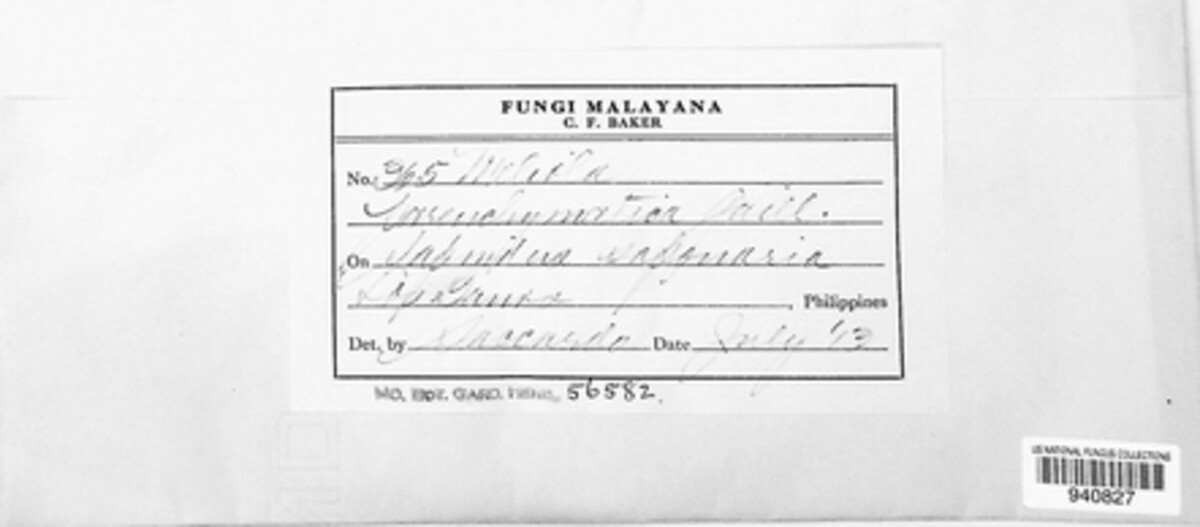 FUNGI MALAYANA
C. F. BAKER
No. 365 Meliola
parenchymatica Gaill.
On Sapindus saponaria
Los Banos, Philippines
Det. by Saccardo Date July '13
MO. BOT. GARD. HERB. 56582.
US NATIONAL FUNGUS COLLECTIONS
940827